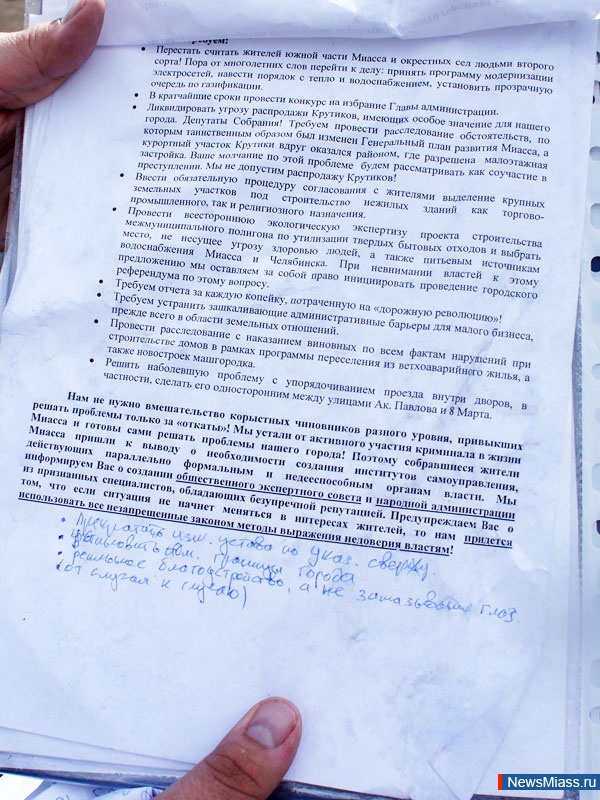 требуем:
• Перестать считать жителей южной части Миасса и окрестных сел людьми второго
сорта! Пора от многолетних слов перейти к делу: принять программу модернизации
электросетей, навести порядок с тепло и водоснабжением, установить прозрачную
очередь по газификации.
• В кратчайшие сроки провести конкурс на избрание Главы администрации.
• Ликвидировать угрозу распродажи Крутиков, имеющих особое значение для нашего
города. Депутаты Собрания! Требуем провести расследование обстоятельств, по
которым таинственным образом был изменен Генеральный план развития Миасса, а
курортный участок Крутики вдруг оказался районом, где разрешена малоэтажная
застройка. Ваше молчание по этой проблеме будем рассматривать как соучастие в
преступлении. Мы не допустим распродажу Крутиков!
• Ввести обязательную процедуру согласования с жителями выделение крупных
земельных участков под строительство нежилых зданий как торгово-
промышленного, так и религиозного назначения.
• Провести всестороннюю экологическую экспертизу проекта строительства
межмуниципального полигона по утилизации твердых бытовых отходов и выбрать
место, не несущее угрозу здоровью людей, а также питьевым источникам
водоснабжения Миасса и Челябинска. При невнимании властей к этому
предложению мы оставляем за собой право инициировать проведение городского
референдума по этому вопросу.
• Требуем отчета за каждую копейку, потраченную на «дорожную революцию»!
• Требуем устранить зашкаливающие административные барьеры для малого бизнеса,
прежде всего в области земельных отношений.
• Провести расследование с наказанием виновных по всем фактам нарушений при
строительстве домов в рамках программы переселения из ветхоаварийного жилья, а
также новостроек машгородка.
• Решить наболевшую проблему с упорядочиванием проезда внутри дворов, в
частности, сделать его односторонним между улицами Ак. Павлова и 8 Марта.
Нам не нужно вмешательство корыстных чиновников разного уровня, привыкших
решать проблемы только за «откаты»! Мы устали от активного участия криминала в жизни
Миасса и готовы сами решать проблемы нашего города! Поэтому собравшиеся жители
Миасса пришли к выводу о необходимости создания институтов самоуправления,
действующих параллельно формальным и недееспособным органам власти. Мы
информируем Вас о создании общественного экспертного совета и народной администрации
из признанных специалистов, обладающих безупречной репутацией. Предупреждаем Вас о
том, что если ситуация не начнет меняться в интересах жителей, то нам придется
использовать все незапрещенные законом методы выражения недоверия властям!
• Прекратить изм. устава по указ. сверху.
• установить границы города
• реальное благоустройство, а не замазывание глаз
(от случая к случаю)
NewsMiass.ru